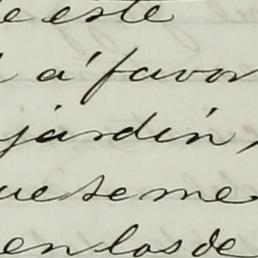 e este
á favor
jardín,
ue se me
en los de